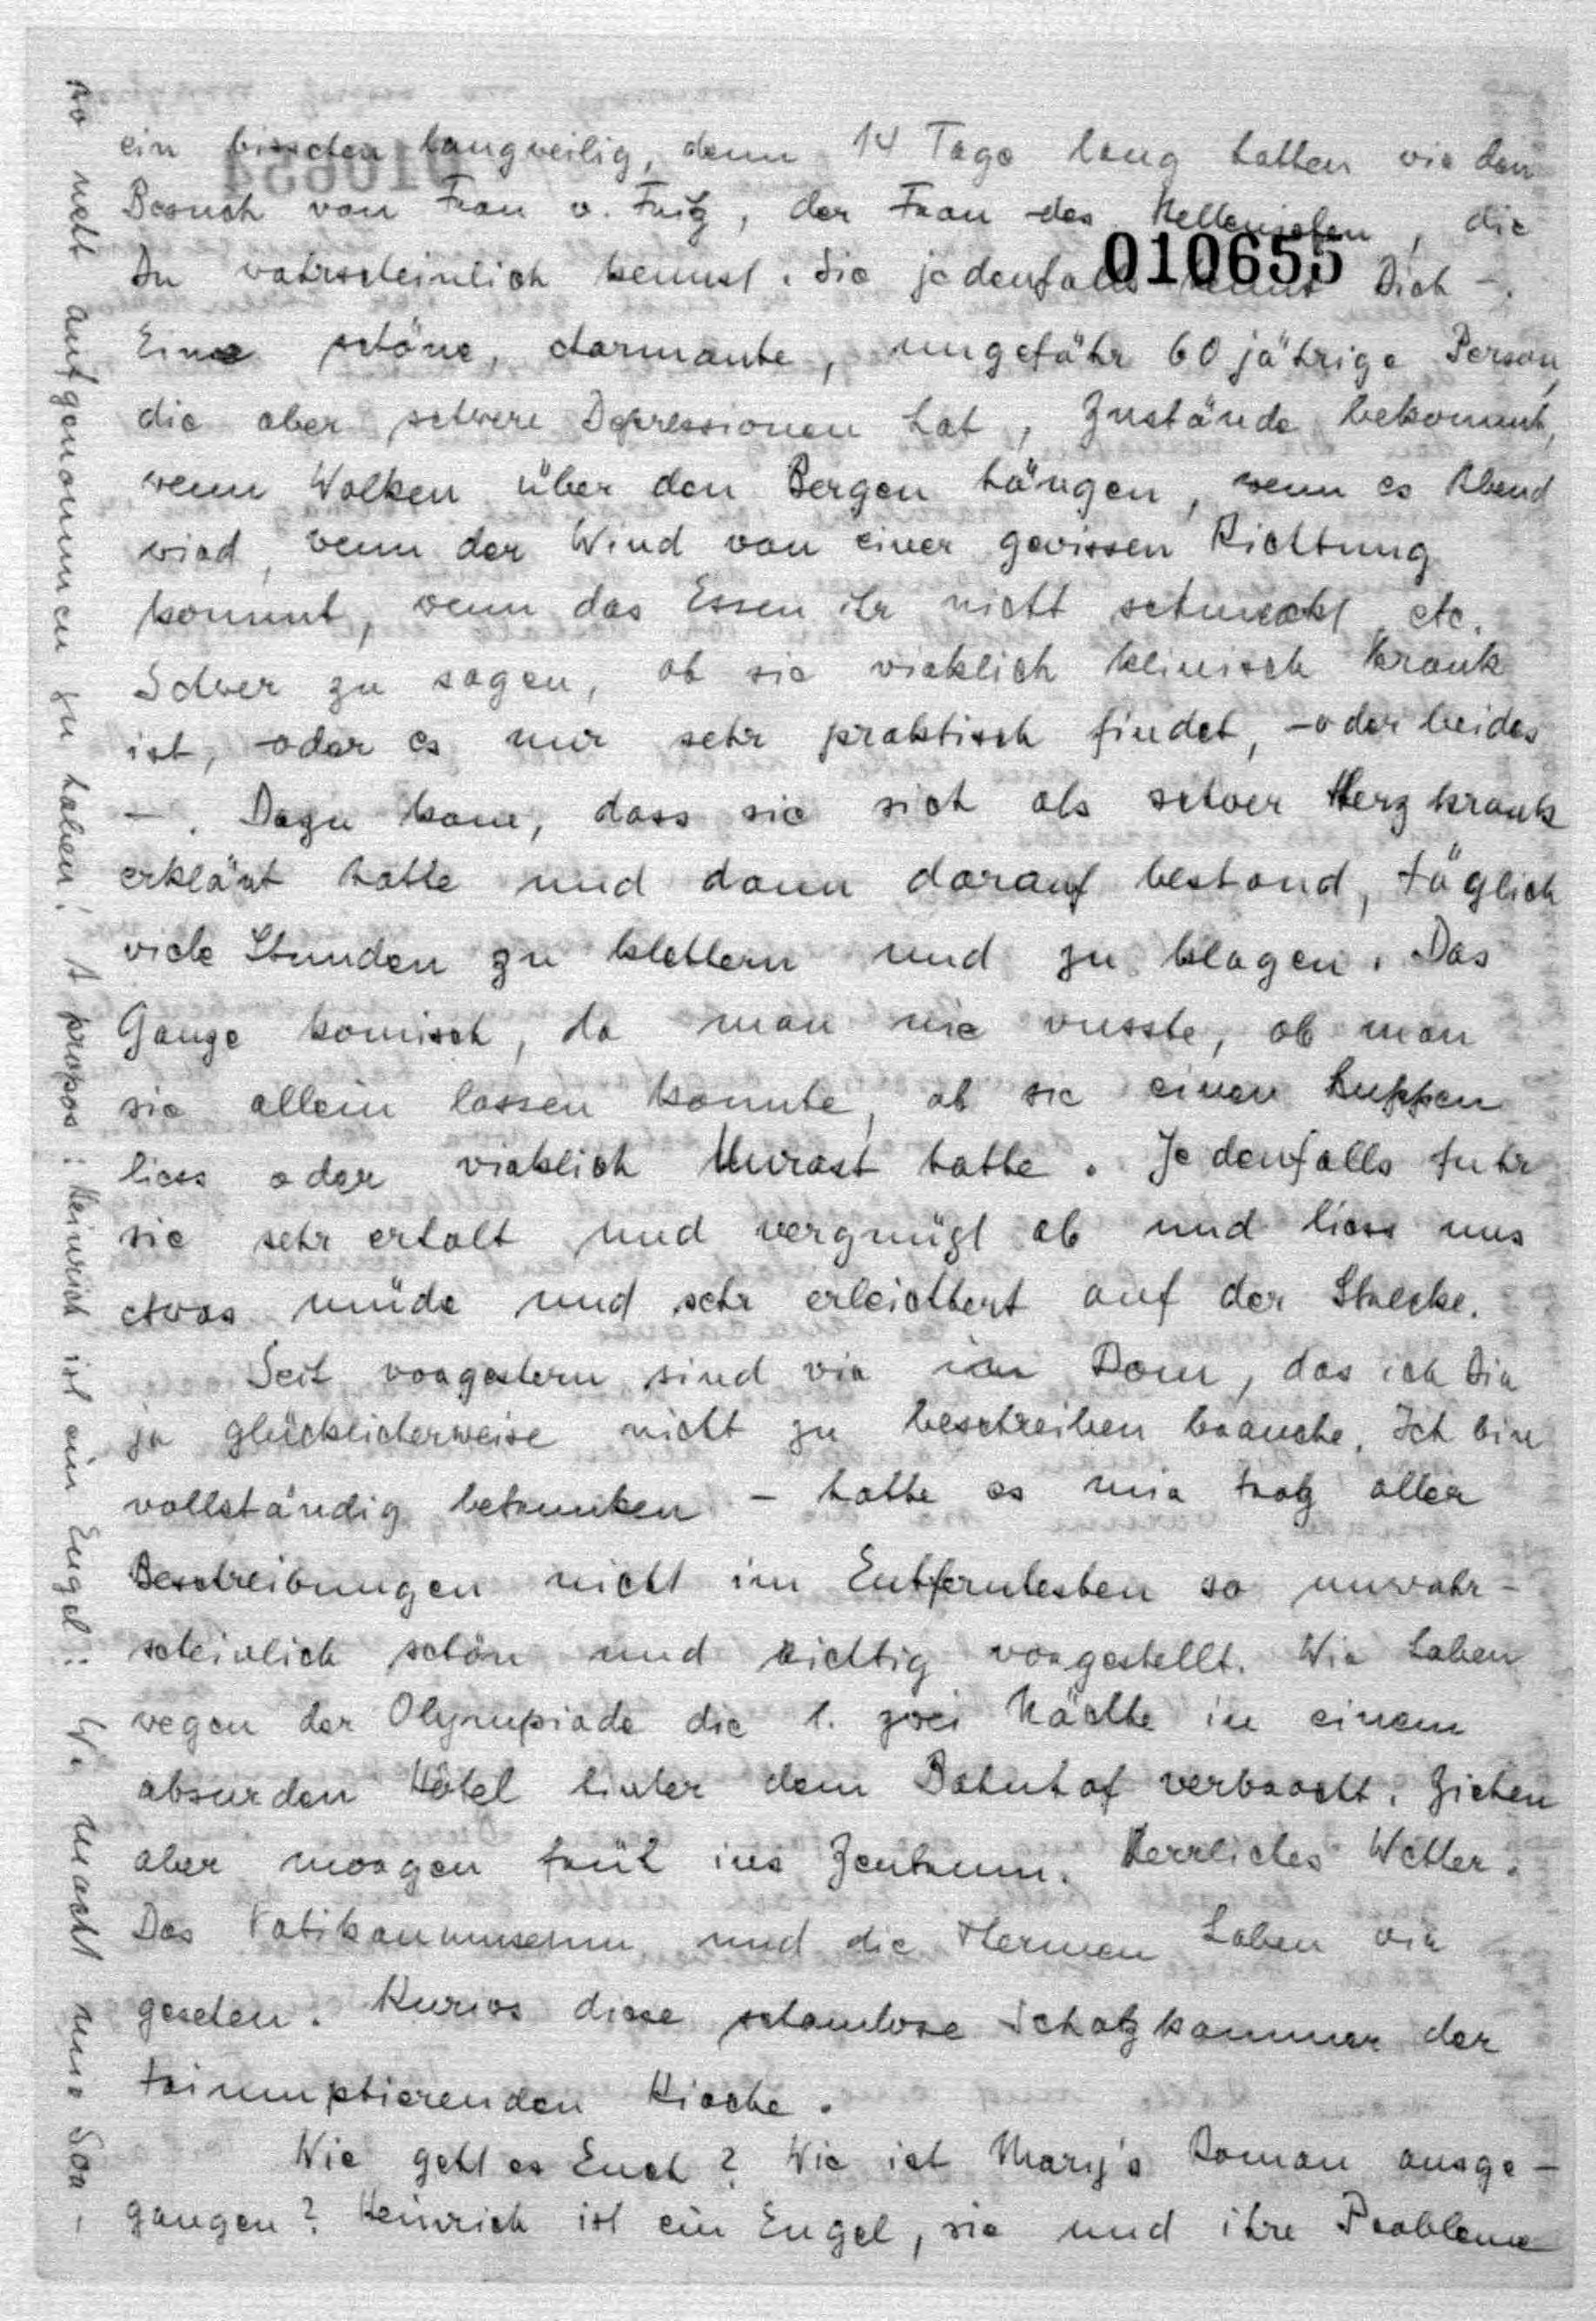 ein bisschen langweilig, denn 14 Tage lang hatten wir den
Besuch von Frau v. Fritz, der Frau des Hellenisten, die
Du wahrscheinlich kennst. Sie jedenfalls kennt Dich –.
010655
Eine schöne, charmante, ungefähr 60 jährige Person,
die aber schwere Depressionen hat, Zustände bekommt,
wenn Wolken über den Bergen hängen, wenn es Abend
wird, wenn der Wind von einer gewissen Richtung
kommt, wenn das Essen ihr nicht schmeckt etc.
Schwer zu sagen, ob sie wirklich klinisch krank
ist, oder es nur sehr praktisch findet, – oder beides
–. Dazu kam, dass sie sich als schwer Herzkrank
erklärt hatte und dann darauf bestand, täglich
viele Stunden zu klettern und zu klagen. Das
Ganze komisch, da man nie wusste, ob man
sie allein lassen konnte, ob sie einen
liess oder wirklich hatte. Jedenfalls fuhr
sie sehr erholt und vergnügt ab und liess uns
etwas müde und sehr erleichtert auf der Strecke.
Seit vorgestern sind wir in Rom, das ich Dir
ja glücklicherweise nicht zu beschreiben brauche. Ich bin
vollständig betrunken – hatte es mir trotz aller
Beschreibungen nicht im Entferntesten so unwahr-
scheinlich schön und richtig vorgestellt. Wir haben
wegen der Olympiade die 1. zwei Nächte in einem
absurden Hotel hinter dem Bahnhof verbracht. Ziehen
aber morgen früh ins Zentrum. Herrliches Wetter.
Das Vatikanmuseum und die Thermen haben wir
gesehen. Kurios diese schamlose Schatzkammer der
triumphierenden Kirche.
Wie geht es Euch? Wie ist Mary's Roman ausge-
gangen? Heinrich ist ein Engel, sie und ihre Probleme
so nett aufgenommen zu haben! A propos: Heinrich ist ein Engel: Er macht mir Sor-